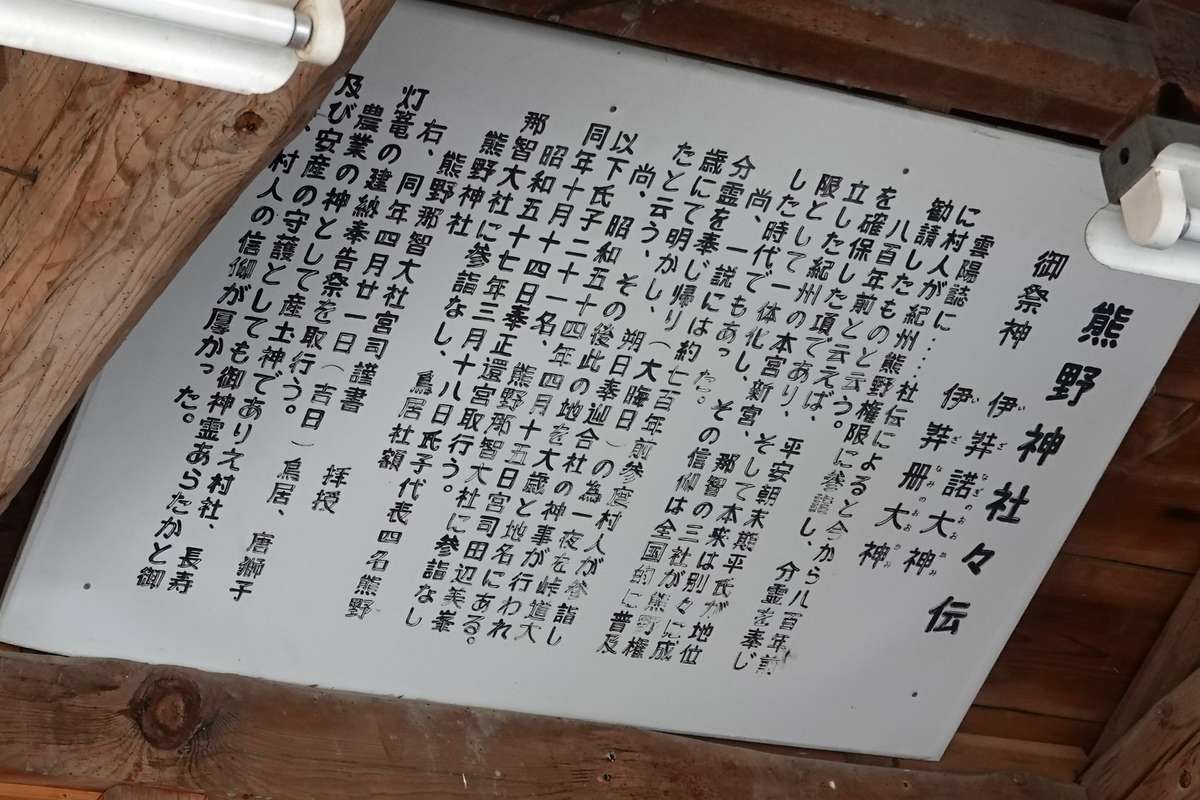 熊野神社々伝
御祭神 伊弉諾大神
伊弉冊大神
雲陽誌に……社伝によると今から八百年前
に村人が紀州熊野権限に参詣し、分霊を奉じ
勧請したものと云う。
八百年前と云えば、平安朝末期平氏が地位
を確保した項であり、
立した紀州の本宮新宮、そして本来は別々に成
限として一体化し、那智の三社が熊野権
した時代でもあった。その信仰は全国的に普及
尚、一説には約七百年前
分霊を奉じ帰り(大晦日)
歳にて明かし、
たと云う、その後此の地を大歳と地名にある。
尚、昭和五十四年四月十五日宮司田辺美峯
以下氏子二十一名、熊野那智大社に参詣なし
同年十月十四日奉正還宮取行う。
昭和五十七年三月十八日氏子代表四名熊野
那智大社に参詣なし、鳥居社額
熊野神社 拝授
右、熊野那智大社宮司謹書
同年四月廿一日(吉日)鳥居、唐獅子
灯篭の建納奉告祭を取行う。
農業の神として産土神でありえ村社、長寿
及び安産の守護としても御神霊あらたかと御
村人の信仰が厚かった。